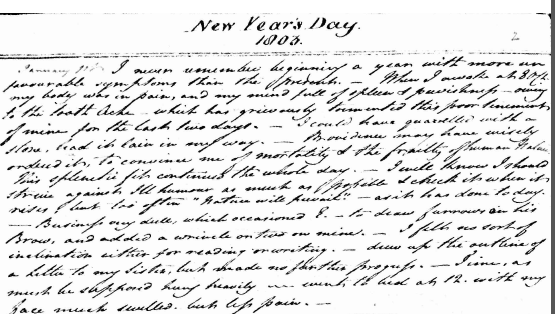 New Year's Day.
1803.
2
January 1st. I never remember beginning a year with more un
favourable symptoms than the present. — When I awoke at 8
my body was in pain, and my mind full of spleen & peevishness — owing
to the tooth Ache — which has grievously tormented this poor tenement
of mine for the last two days. — I could have quarrelled with a
stone, had it lain in my way. — Providence may have wisely
ordered it, to convince me of mortality & the frailty of human Nature
This splenetic fit continued the whole day. — I well know I should
strive against Ill humour as much as possible & check it when it
rises, but too often "Nature will prevail" — as it has done to day.
— Business very dull, which occasioned — to draw furrows in his
Brow, and added a wrinkle or two on mine. — I felt no sort of
inclination either for reading or writing. — drew up the outline of
a letter to my Sister, but made no further progress. — Time, as
must be supposed hung heavily — went to bed at 12. with my
face much swelled. but less pain. —